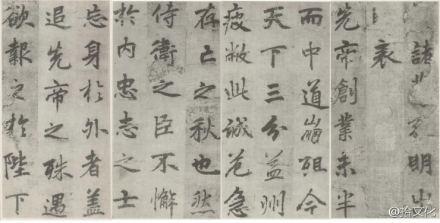 諸明出
表
先帝創業未半
而中道崩殂今
天下三分益州
疲敝此誠危急
存亡之秋也然
侍衛之臣不懈
於内忠志之士
忘身於外者蓋
追先帝之殊遇
欲報之於陛下
文化